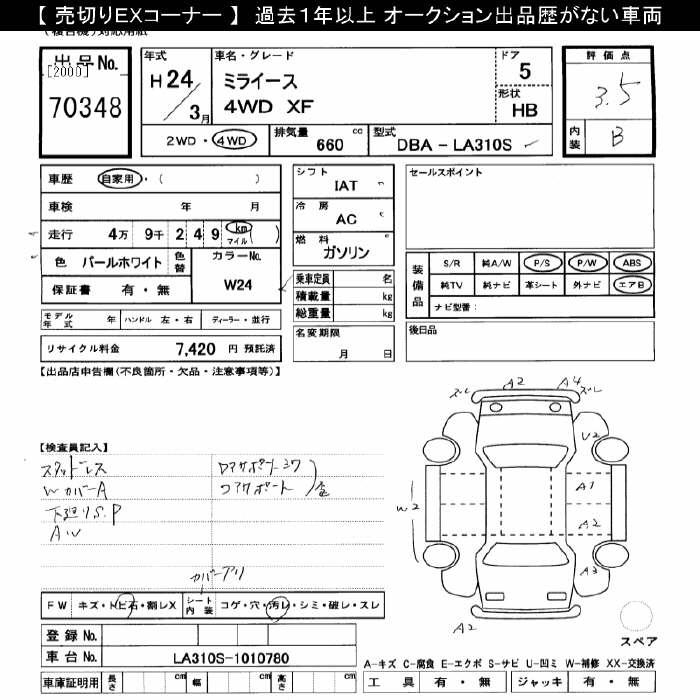 【 売切りEXコーナー 】 過去1年以上 オークション出品歴がない車両
出品No. [2000] 70348
年式 H24/3月
車名・グレード ミライース 4WD XF
ドア 5
形状 HB
2WD・4WD
排気量 660 cc
型式 DBA - LA310S
評価点 3.5
内装 B
車歴 自家用・( )
車検 年 月
走行 4万 9千 2 4 9 km マイル ( )
色 パールホワイト 色替 カラーNo. W24
保証書 有・無
モデル年式 年 ハンドル 左・右 ディーラー・並行
リサイクル料金 7,420 円 預託済
シフト IAT
冷房 AC
燃料 ガソリン
乗車定員 名
積載量 kg
総重量 kg
名変期限 月 日
セールスポイント
装備品 S/R 純A/W P/S P/W ABS
純TV 純ナビ 革シート 外ナビ エアB
ナビ型番:
後日品
【出品店申告欄(不良箇所・欠品・注意事項等)】
【検査員記入】
スタッドレス
WカバーA
下廻りS.P
AW
コアサポート
カバーアリ
FW キズ・トビ石・割レX シート内装 コゲ・穴・汚レ・シミ・破レ・スレ
登録No.
車台No. LA310S-1010780
車庫証明用 長さ cm 幅 cm 高さ cm
ズレ A2 A4 ズレ
U2
A1
W2
A2
A3
A2
スペア
A-キズ C-腐食 E-エクボ S-サビ U-凹ミ W-補修 XX-交換済
工具 有・無 ジャッキ 有・無